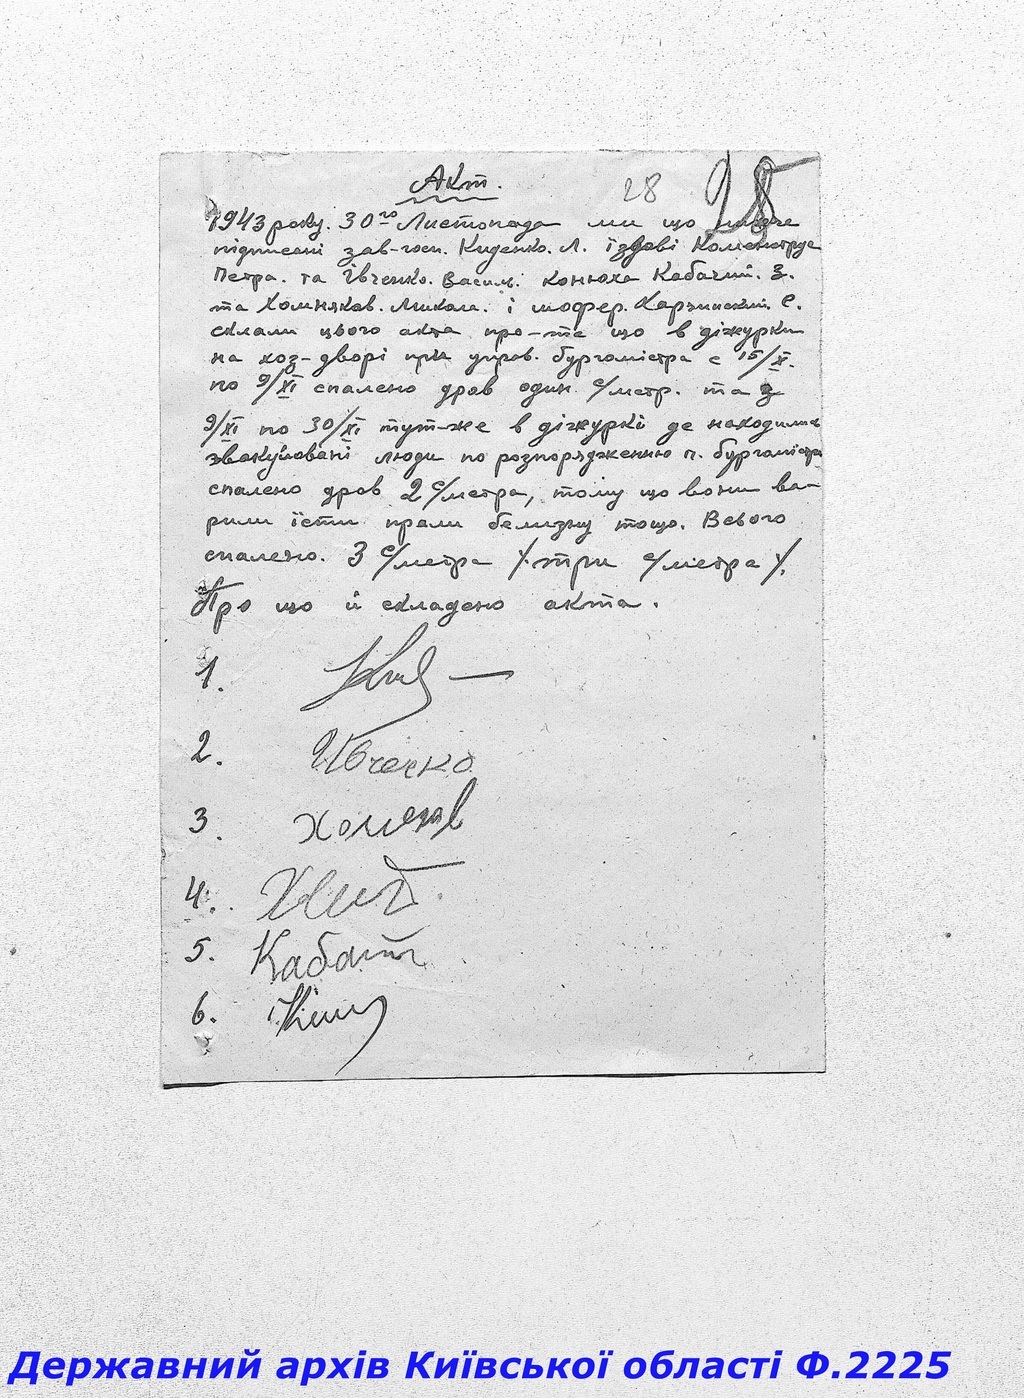 Акт.
28
28
1943 року. 30го Листопада ми що нижче
підписані зав-госп. Киденко. Л. їздові
Петра. та Івченко. Василь. конюха Кабачий. З.
та Хомняков. Микола. і шофер. С.
склали цього акта про-те що в діжурки
на хоз-дворі при управ. бургомістра с 15/X.
по 9/XI спалено дров один с/метр. та з
9/XI по 30/XI тут-же в діжуркі де находились
эвакуйовані люди по розпорядженню п. бургомістра
спалено дров 2 с/метра, тому що вони ва-
рили їсти прали белизну тощо. Всього
спалено. 3 с/метра /. три с/метра /.
Про що й складено акта.
1.
2. Івченко
3.
4.
5.
6.
Державний архів Київської області Ф.2225